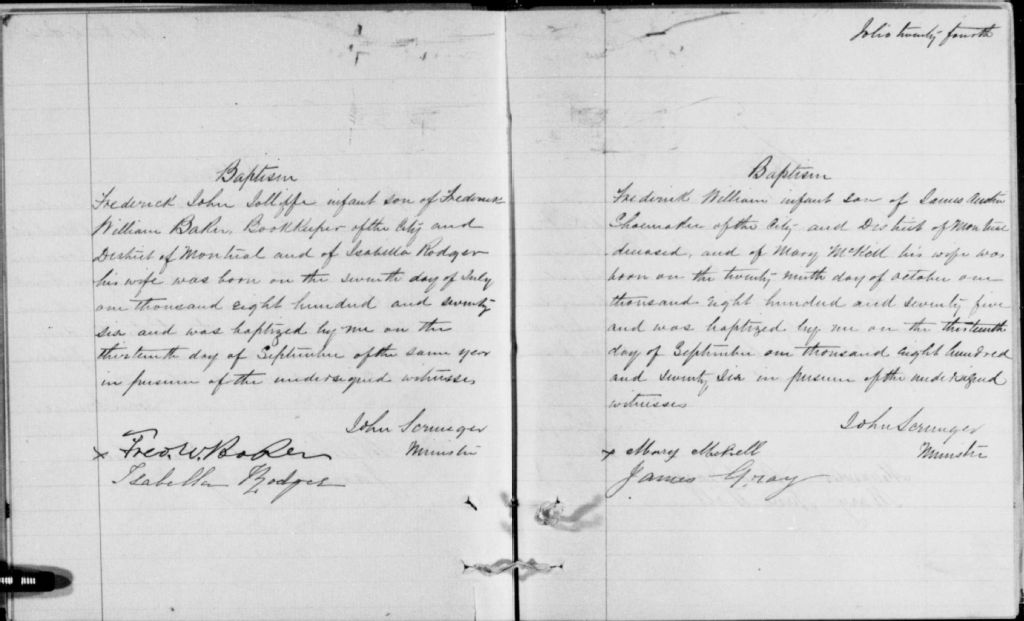 Baptism
Frederick John Jolliffe infant son of Frederick
William Baker, Bookkeeper of the City and
District of Montreal and of Isabella Rodger
his wife was born on the seventh day of July
one thousand eight hundred and seventy
six and was baptized by me on the
thirteenth day of September of the same year
in presence of the undersigned witnesses
John Scrimger
Minister
x Fred. W. Baker
Isabella Rodger
folio twenty fourth
Baptism
Frederick William infant son of James Austin
Shoemaker of the City and District of Montreal
deceased, and of Mary McKell his wife was
born on the twenty ninth day of october one
thousand eight hundred and seventy five
and was baptized by me on the thirteenth
day of September one thousand eight hundred
and seventy six in presence of the undersigned
witnesses
John Scrimger
Minister
x Mary Mckell
James Gray